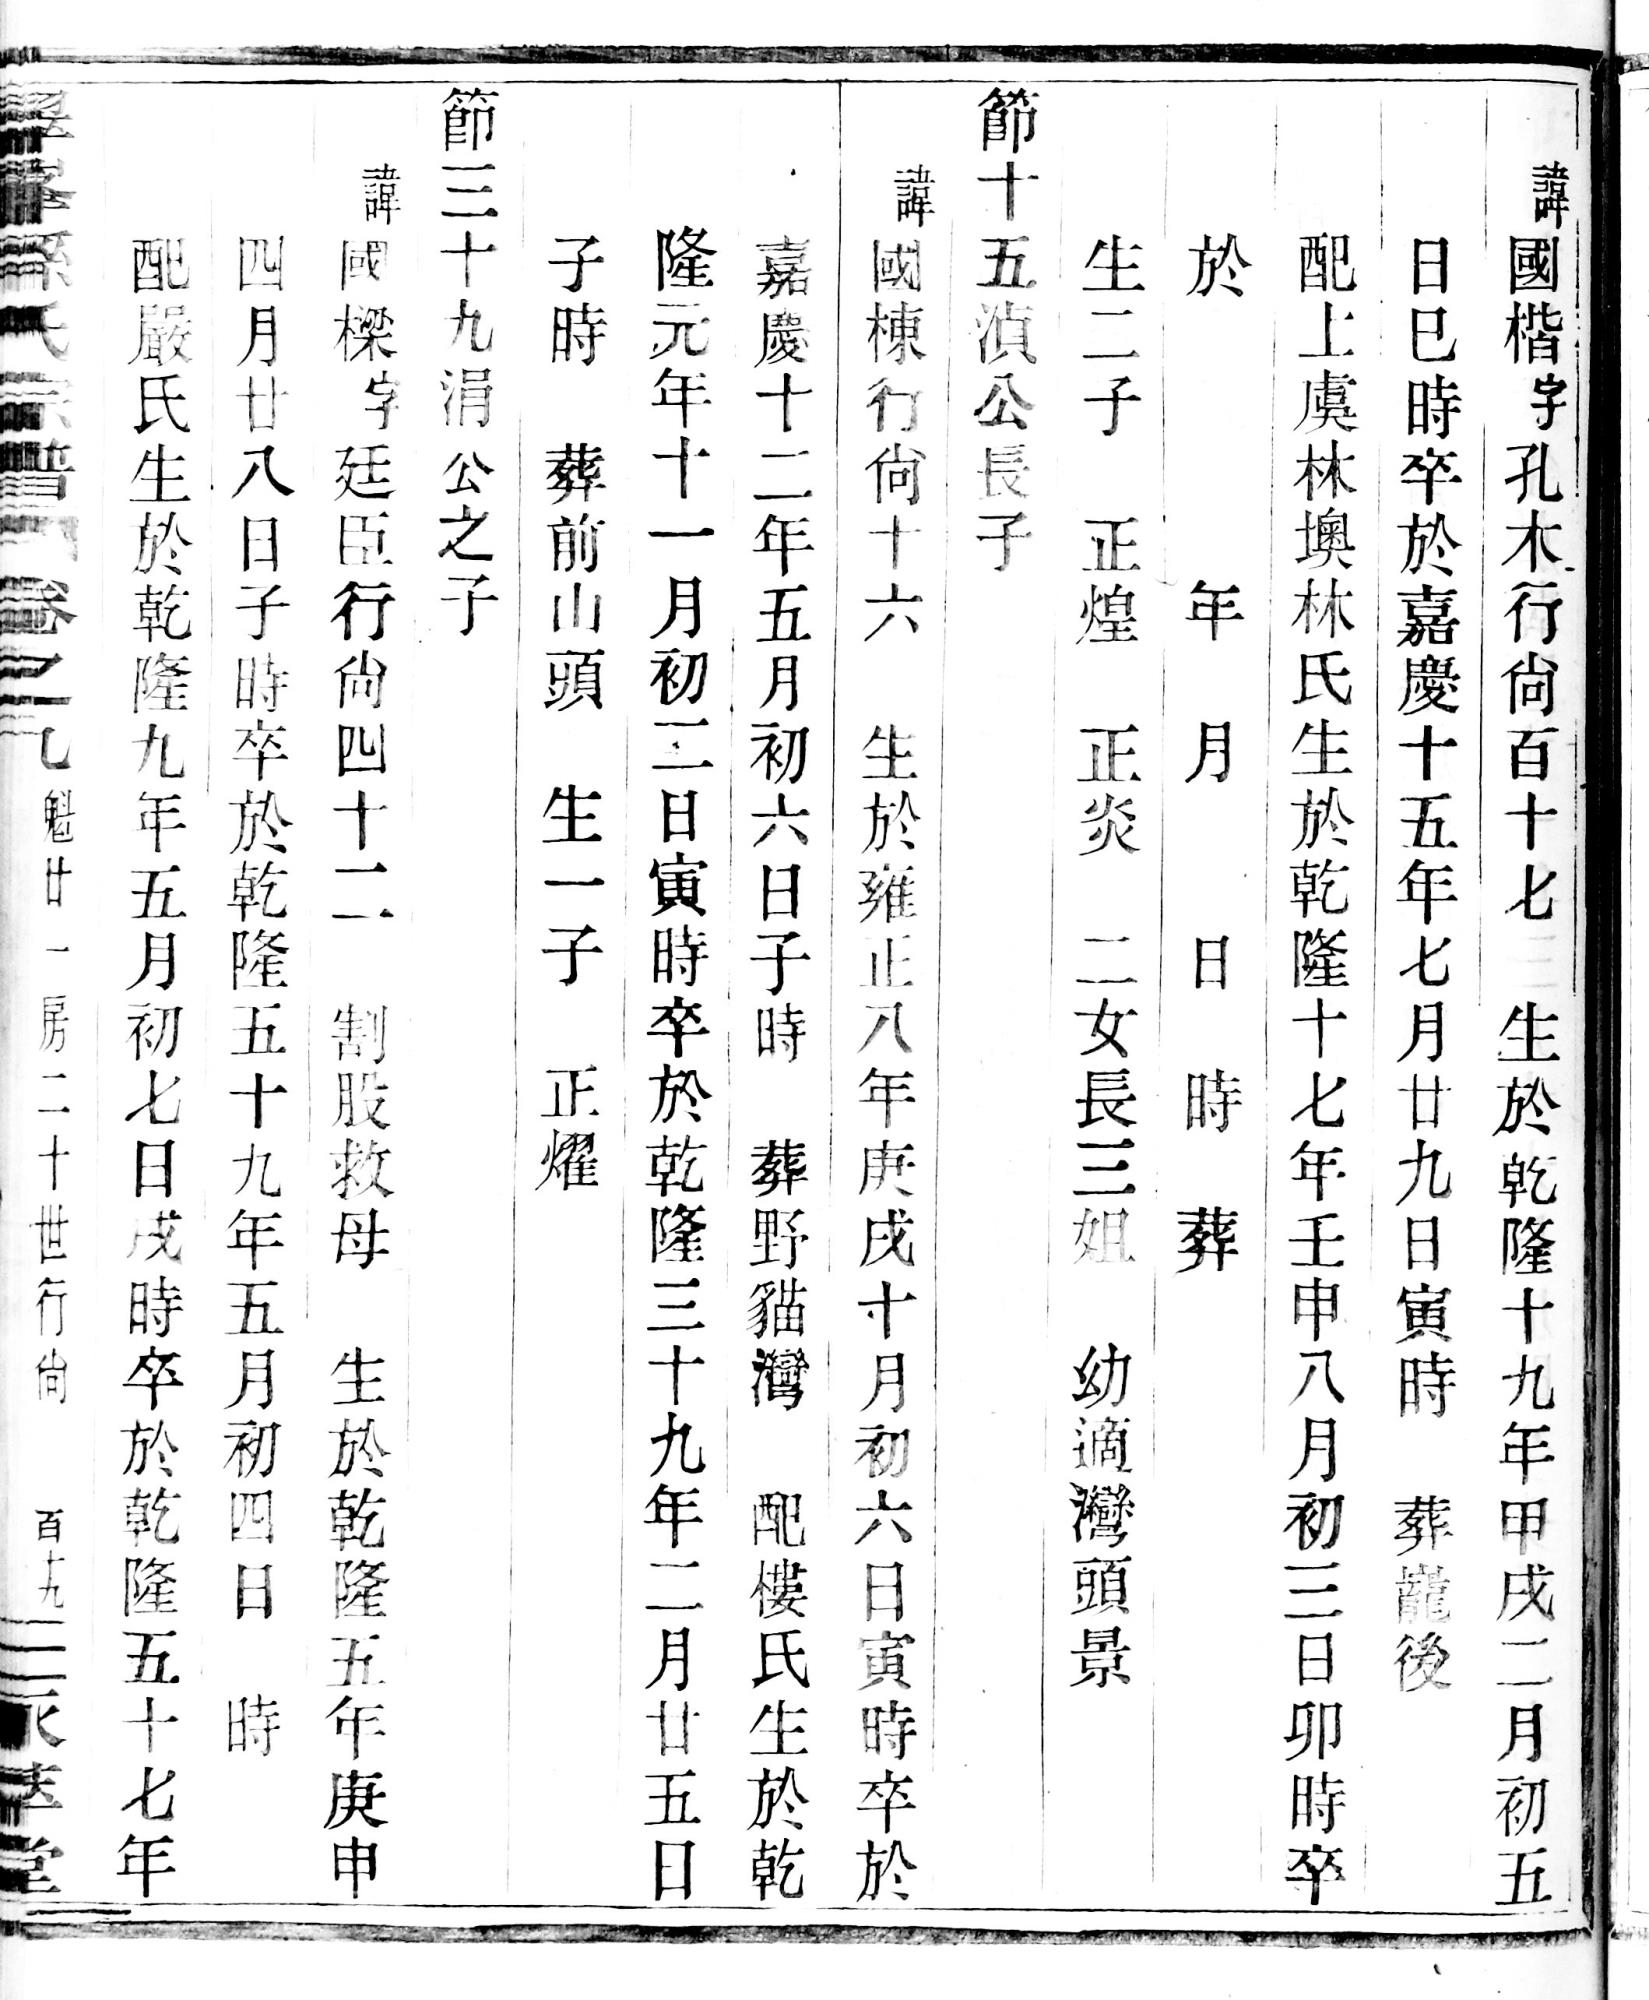 諱國楷字孔木行尙百十七　生於乾隆十九年甲戌二月初五
日巳時卒於嘉慶十五年七月廿九日寅時　葬龍後
配上虞林墺林氏生於乾隆十七年壬申八月初三日卯時卒
於　年　月　日　時　葬
生二子　正煌　正炎　二女長三姐　幼適灣頭景
節十五湞公長子
諱國棟行尙十六　生於雍正八年庚戌十月初六日寅時卒於
嘉慶十二年五月初六日子時　葬野貓灣　配樓氏生於乾
隆元年十一月初二日寅時卒於乾隆三十九年二月廿五日
子時　葬前山頭　生一子　正燿
節三十九涓公之子
諱國樑字廷臣行尙四十二　割股救母　生於乾隆五年庚申
四月廿八日子時卒於乾隆五十九年五月初四日　時
配嚴氏生於乾隆九年五月初七日戌時卒於乾隆五十七年
孫氏宗譜　卷之九　魁廿一房二十世行尙　百十九　堂